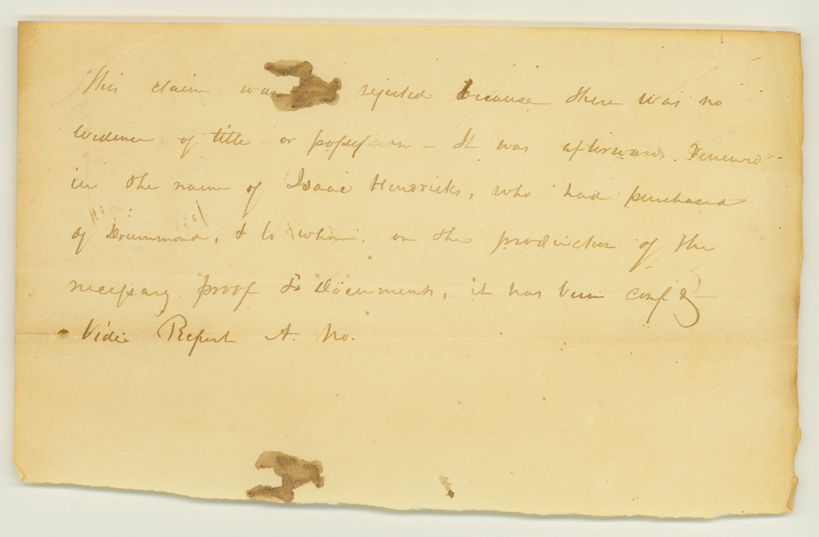 This claim was rejected because there was no
evidence of title or possession - It was afterwards renewed
in the name of Isaac Hendricks, who had purchased
of Drummond, & to whom, on the production of the
necessary proof & Documents, it has been conf d
Vide Report A. No.